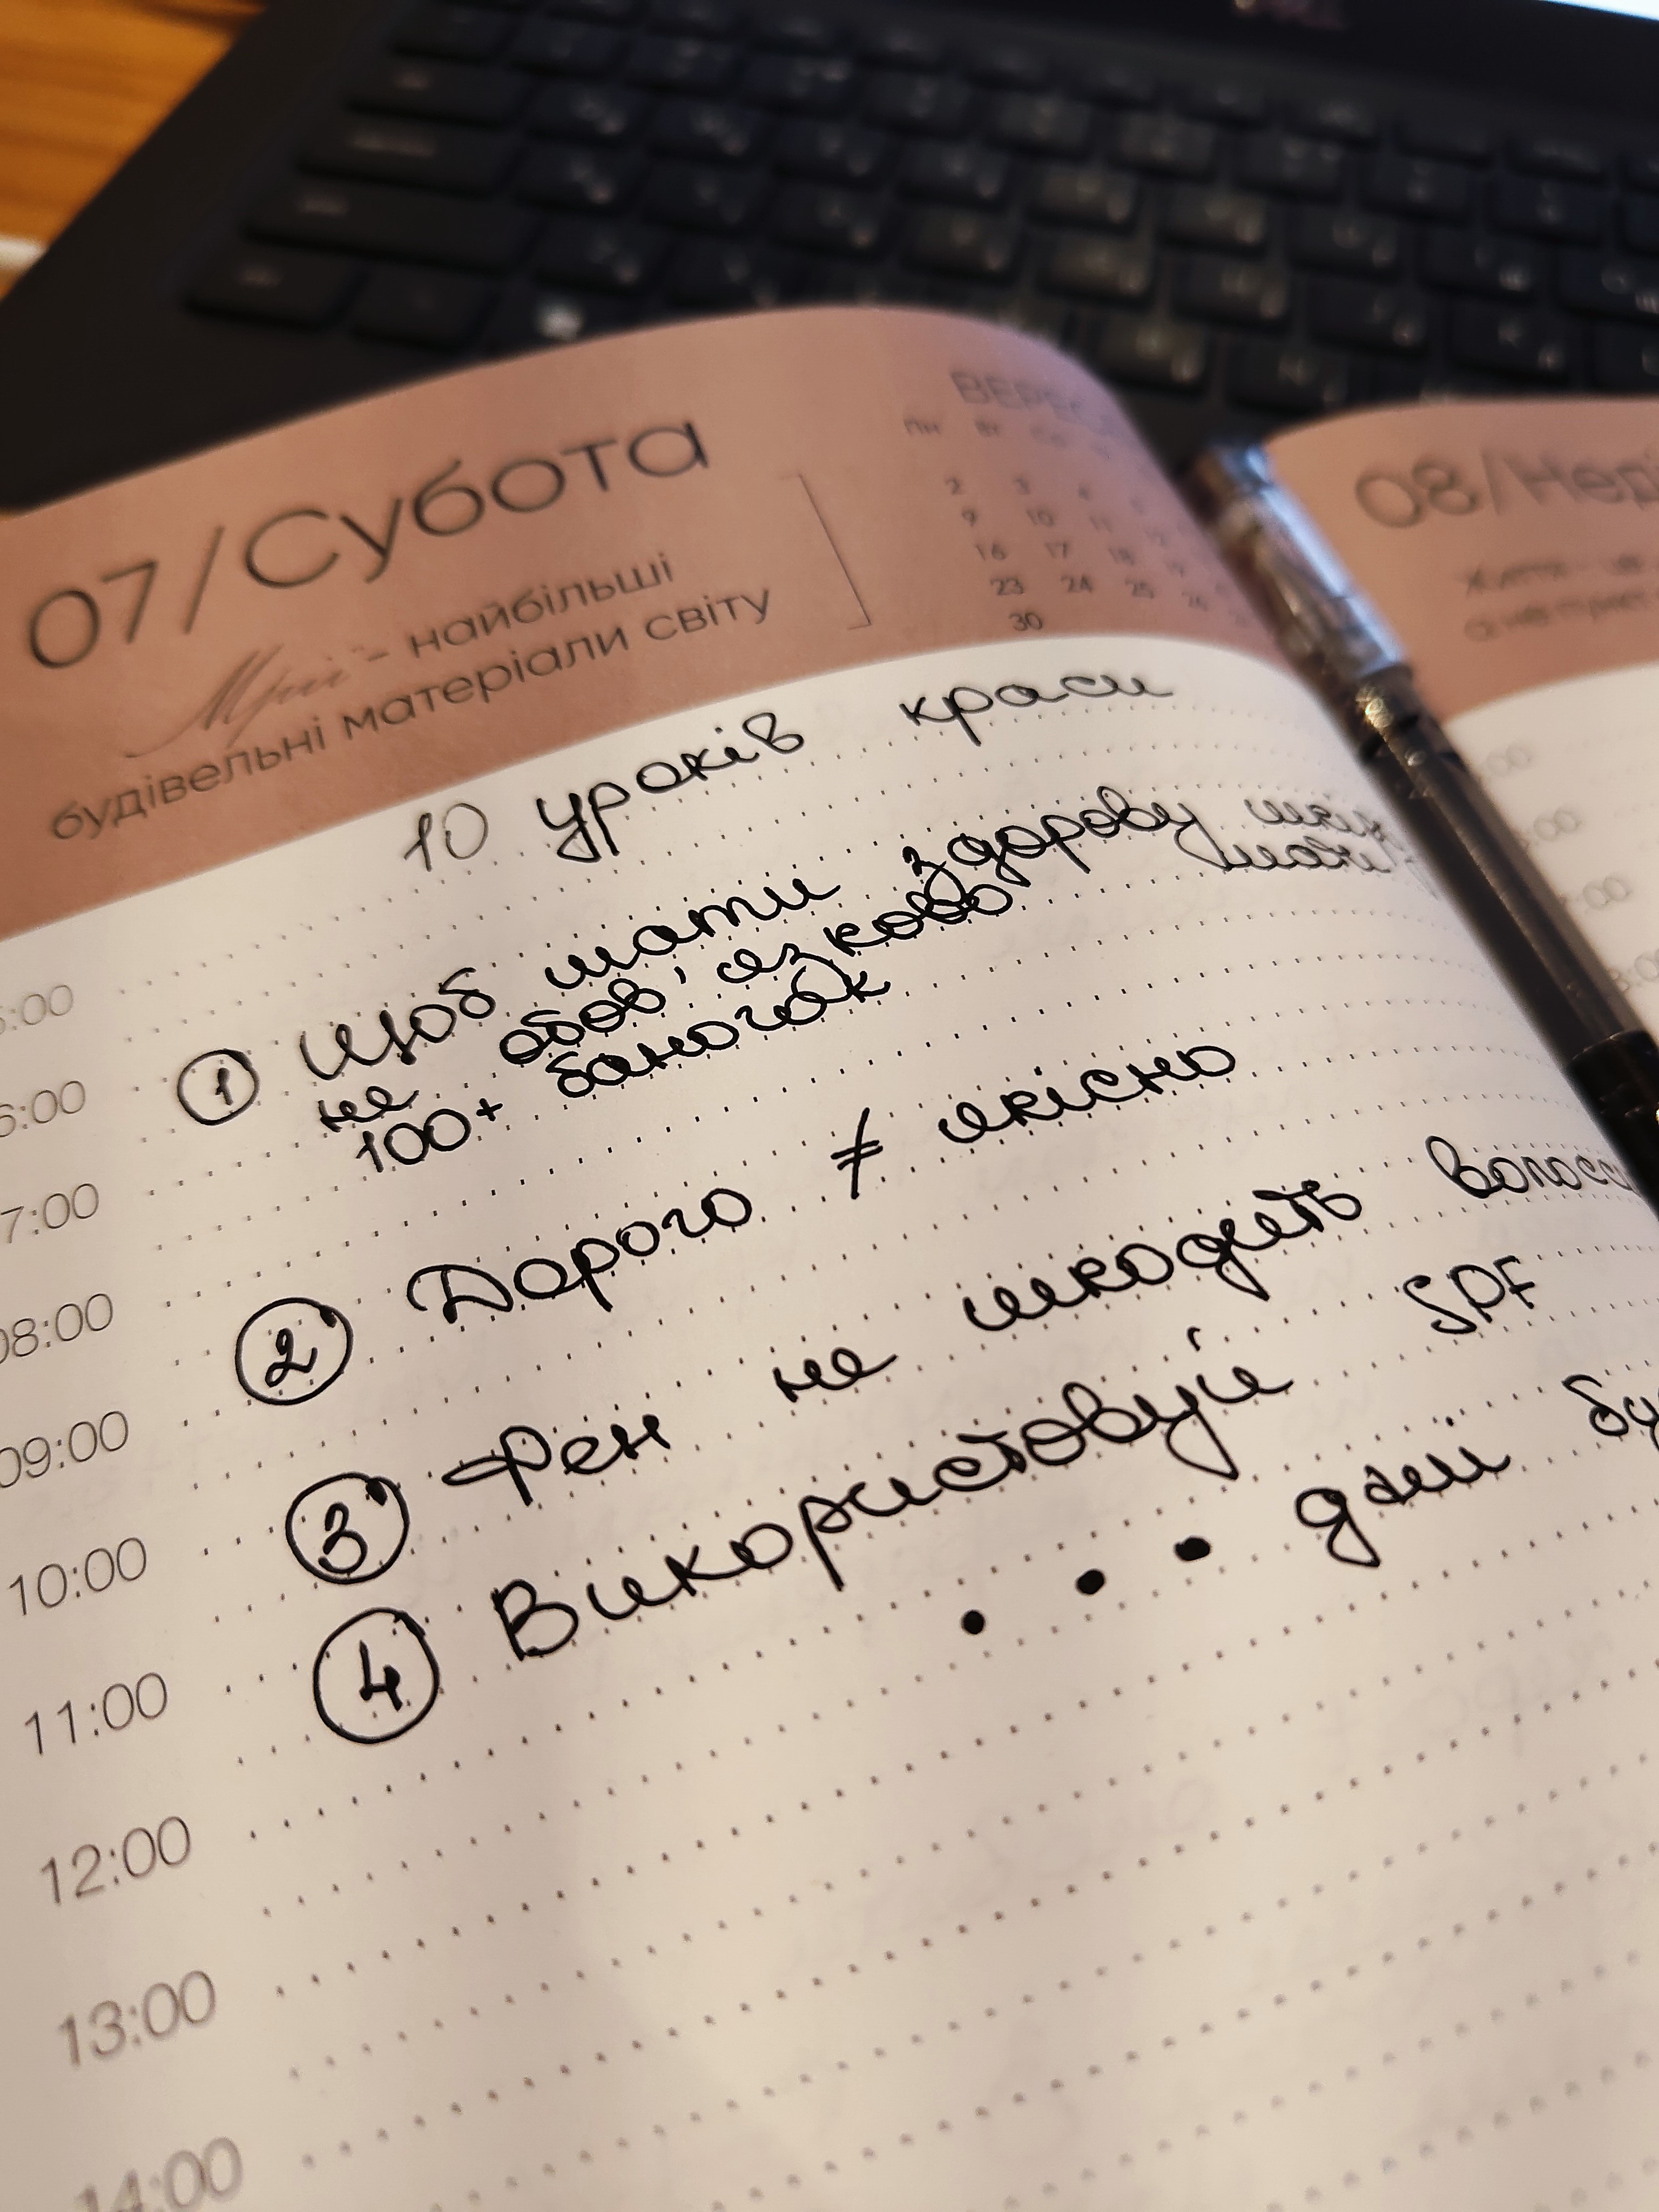 07/Субота
Мрії - найбільші
будівельні матеріали світу
ПН ВТ СР
2 3 4
9 10 11 12
16 17 18 19
23 24 25 26
30
08/
10 уроків краси
① Щоб мати здорову
не обов'язково мати
100+ баночок
② Дорого ≠ якісно
③ Фен не шкодить
④ Використовуй SPF
• • • далі
6:00
7:00
08:00
09:00
10:00
11:00
12:00
13:00
14:00